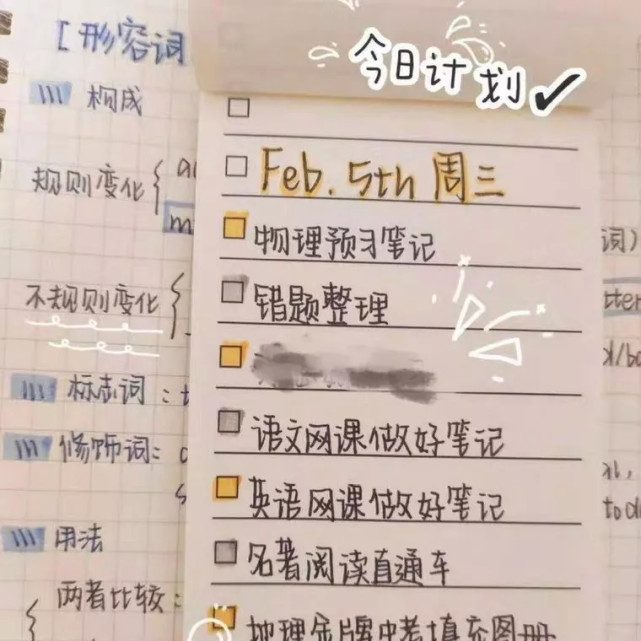 [形容词
构成
规则变化
不规则变化
标志词：
修饰词：
用法
两者比较：
今日计划✓
Feb. 5th 周三
物理预习笔记
错题整理
语文网课做好笔记
英语网课做好笔记
名著阅读直通车
地理金牌中考填充图册
词)